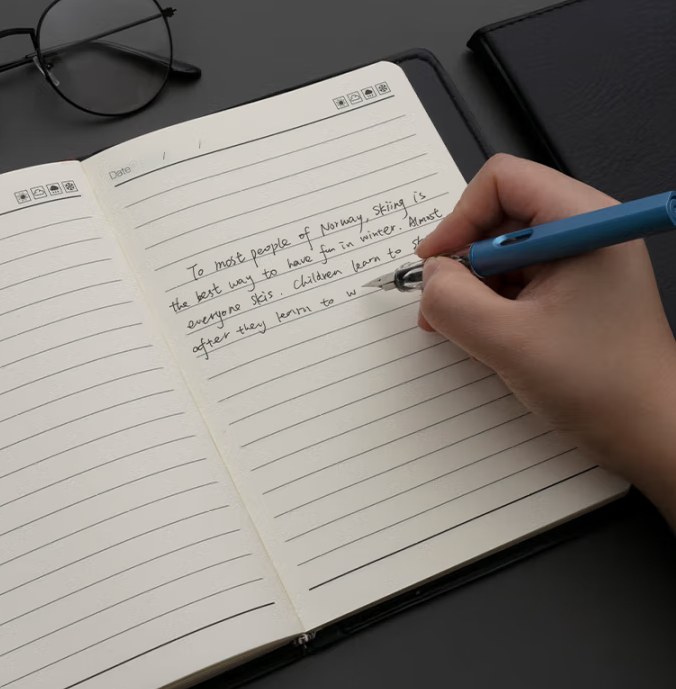 Date / /
To most people of Norway, skiing is
the best way to have fun in winter. Almost
everyone skis. Children learn to
after they learn to w